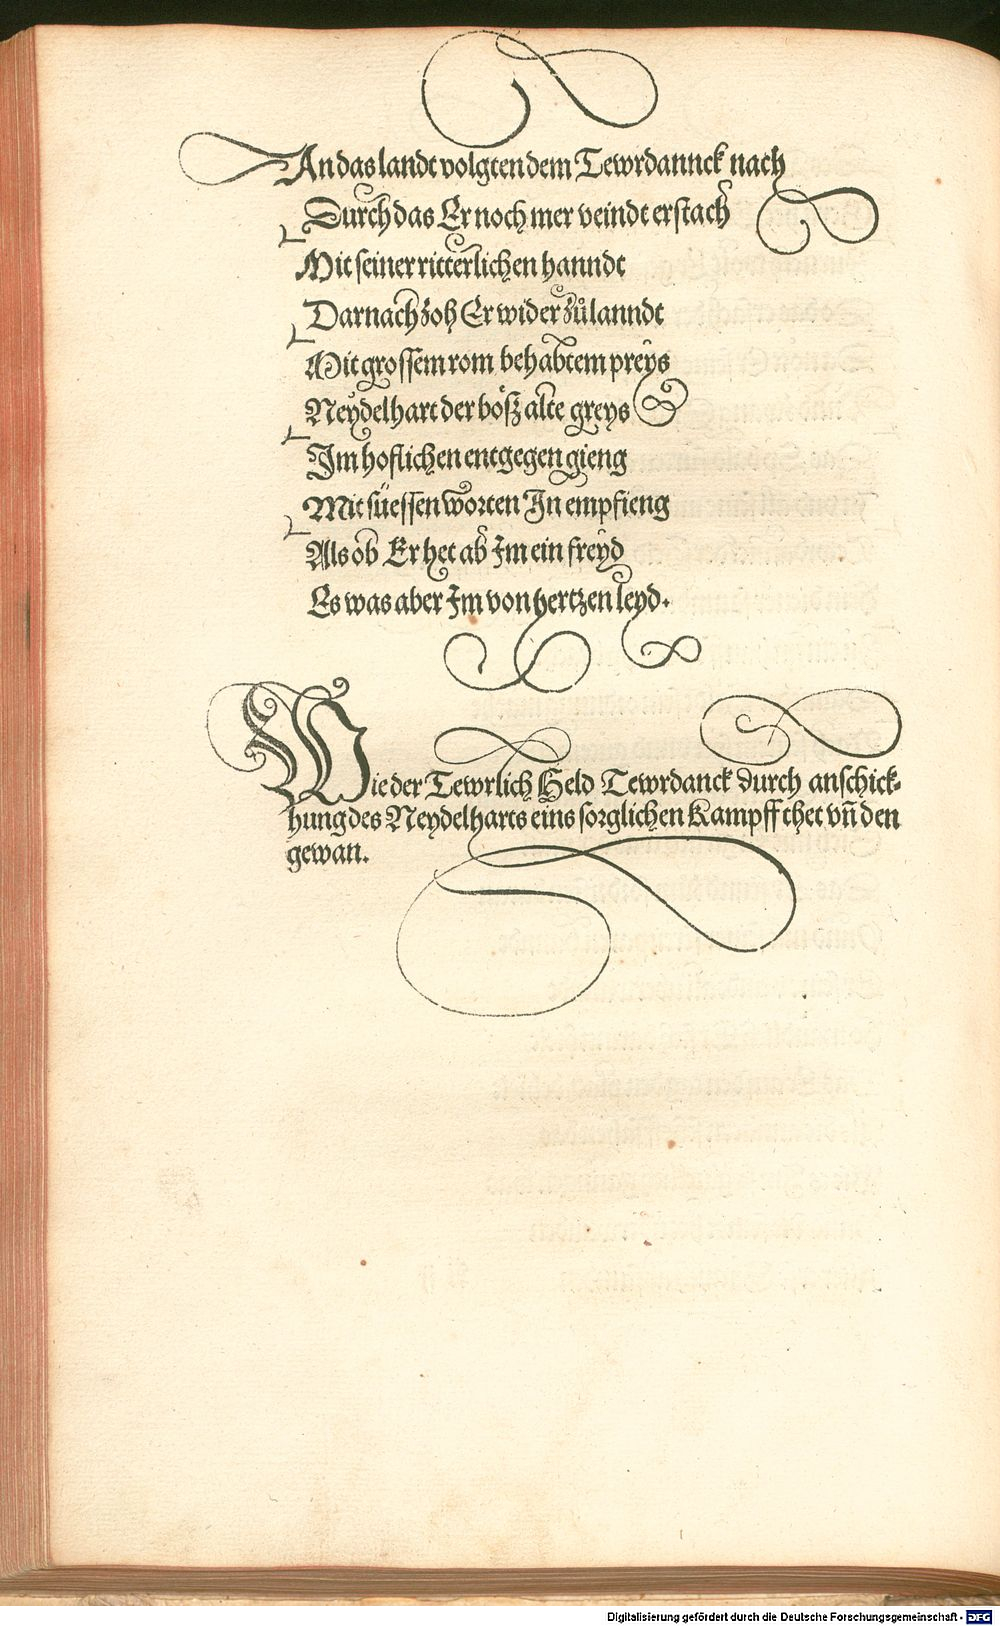 An das landt volgten dem Tewrdannck nach
Durch das Er noch mer veindt erstach
Mit seiner ritterlichen hanndt
Darnach zoh Er wider zůlanndt
Mit grossem rom behabtem preys
Neydelhart der bösz alte greys
Im hoflichen entgegen gieng
Mit süessen worten In empfieng
Als ob Er het ab Im ein freyd
Es was aber Im von hertzen leyd.
Wie der Tewrlich Held Tewrdanck durch anschick-
hung des Neydelharts eins sorglichen Kampff thet vñ den
gewan.
Digitalisierung gefördert durch die Deutsche Forschungsgemeinschaft - DFG